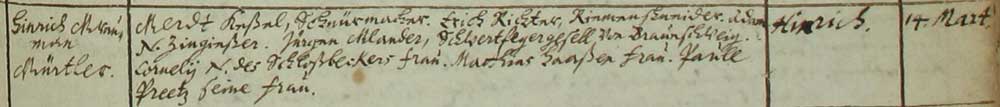 Hinrich Meau,
man
Würtler.
Merdt Keßel, Schnürmacher. Erich Richter, Riemenschneider. Adam
N. Zingießer. Jürgen Mlander, Schwertfegergesell von Braunschweig.
Cornelij N. des Schloßbeckers frau. Matthias Haaßen frau. Paull
Preetz seine frau.
Hinrich.
14 Mart.